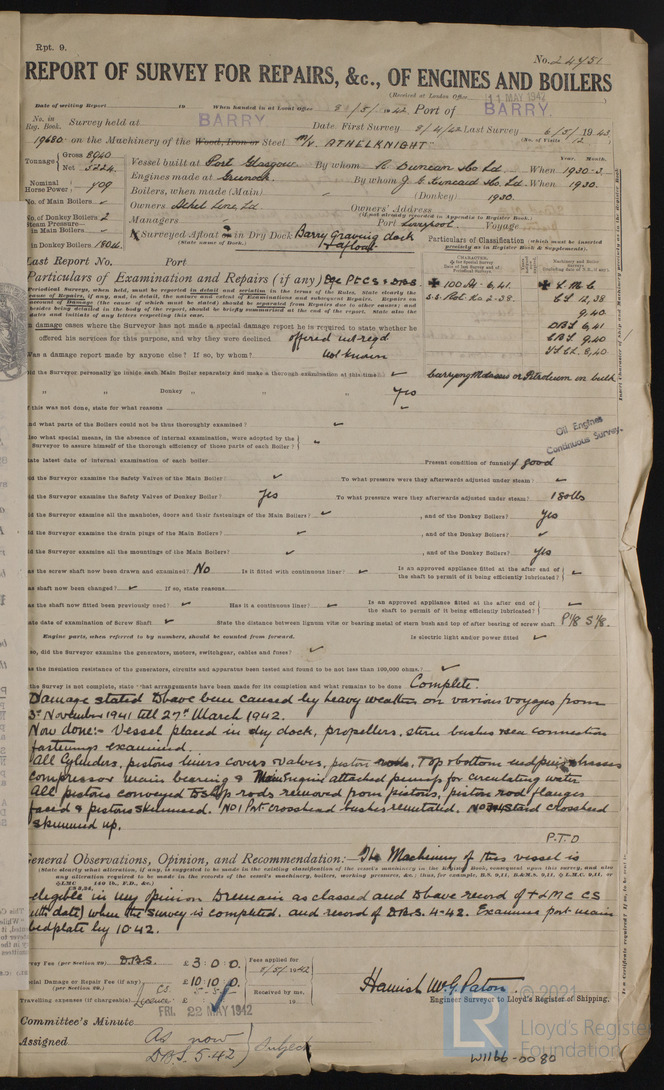 Rpt. 9.
No. 24451
REPORT OF SURVEY FOR REPAIRS, &c., OF ENGINES AND BOILERS
(Received at London Office 11 MAY 1942 )
Date of writing Report 19 When handed in at Local Office 8/5/1942 Port of BARRY
No. in Reg. Book. Survey held at BARRY Date. First Survey 8/4/42 Last Survey 6/5/1942
(No. of Visits 12 )
19680 on the Machinery of the Wood, Iron or Steel M/V "ATHELKNIGHT"
Tonnage Gross 8940 Net 5224
Vessel built at Port Glasgow By whom R. Duncan & Co Ld When 1930-3
Year. Month.
Nominal Horse Power 709
Engines made at Greenock By whom J. G. Kincaid & Co. Ld. When 1930.
Boilers, when made (Main) (Donkey) 1930.
No. of Main Boilers
Owners Athel Line, Ld Owners' Address
(if not already recorded in Appendix to Register Book.)
No. of Donkey Boilers 2
Managers Port Liverpool Voyage
Steam Pressure— in Main Boilers
in Donkey Boilers 180 lb.
If Surveyed Afloat or in Dry Dock Barry Graving dock & afloat
(State name of Dock.)
Particulars of Classification (which must be inserted precisely as in the Register Book & Supplements).
Last Report No. Port
Particulars of Examination and Repairs (if any) CS & DBS
✠ 100 A1 6,41.
S.S. No. 2-38.
✠ L M C
CS 12,38
9,40
DBS 6,41
carrying Molasses or Petroleum in bulk
In damage cases where the Surveyor has not made a special damage report he is required to state whether he
offered his services for this purpose, and why they were declined offered not reqd
Was a damage report made by anyone else? If so, by whom? not known
Did the Surveyor personally go inside each Main Boiler separately and make a thorough examination at this time?
" " Donkey " " " Yes
If this was not done, state for what reasons
And what parts of the Boilers could not be thus thoroughly examined?
Also what special means, in the absence of internal examination, were adopted by the
Surveyor to assure himself of the thorough efficiency of those parts of each Boiler?
Oil Engines
Continuous Survey.
State latest date of internal examination of each boiler Present condition of funnel(s) good
Did the Surveyor examine the Safety Valves of the Main Boiler? To what pressure were they afterwards adjusted under steam?
Did the Surveyor examine the Safety Valves of Donkey Boiler? Yes To what pressure were they afterwards adjusted under steam? 180 lbs
Did the Surveyor examine all the manholes, doors and their fastenings of the Main Boilers? , and of the Donkey Boilers? Yes
Did the Surveyor examine the drain plugs of the Main Boilers? , and of the Donkey Boilers?
Did the Surveyor examine all the mountings of the Main Boilers? , and of the Donkey Boilers? Yes
Has the screw shaft now been drawn and examined? No Is it fitted with continuous liner? Is an approved appliance fitted at the after end of the shaft to permit of it being efficiently lubricated?
Has shaft now been changed? If so, state reasons
Has the shaft now fitted been previously used? Has it a continuous liner? Is an approved appliance fitted at the after end of the shaft to permit of it being efficiently lubricated?
State date of examination of Screw Shaft State the distance between lignum vitæ or bearing metal of stern bush and top of after bearing of screw shaft P 1/8 S 1/8.
Engine parts, when referred to by numbers, should be counted from forward. Is electric light and/or power fitted
If so, did the Surveyor examine the generators, motors, switchgear, cables and fuses?
Has the insulation resistance of the generators, circuits and apparatus been tested and found to be not less than 100,000 ohms.?
If the Survey is not complete, state what arrangements have been made for its completion and what remains to be done Complete.
Damage stated to have been caused by heavy weather on various voyages from
3rd November 1941 till 27th March 1942.
Now done:- Vessel placed in dry dock, propellers, stern bushes sea connection
fastenings examined.
All Cylinders, pistons liners covers & valves, piston rods, top & bottom end pins & brasses
compressor main bearing & Main Engine attached pumps for circulating water
All pistons conveyed to shop rods removed from pistons, piston rod flanges
faced & pistons skimmed. No 1 Port crosshead bushes remetalled. No 3 & 4 Stard crosshead
skimmed up.
P.T.O
General Observations, Opinion, and Recommendation:— The Machinery of this vessel is
(State clearly what alteration, if any, is suggested to be made in the existing classification of the vessel's machinery in the Register Book, consequent upon this survey, and also
any alteration required to be made in the records of the vessel's machinery, boilers, working pressures, &c.; thus, for example, B.S. 9,11, B.&M.S. 9,11, ✠L.M.C. 9,11, or
✠LMC CS 3,34, 140 lb., F.D., &c.)
eligible in my opinion to remain as classed and to have record of + LMC CS
(with date) when the survey is completed. and record of DBS. 4-42. Examine port main
bedplate by 10.42.
Survey Fee (per Section 29.) D.B.S. £ 3: 0: 0.
Special Damage or Repair Fee (if any) (per Section 29.) £ 10: 10: 0.
CS
Travelling expenses (if chargeable) Licence £
Fees applied for 8/5/1942
Received by me, 19
Hamish McG. Paton
Engineer Surveyor to Lloyd's Register of Shipping.
Committee's Minute FRI. 22 MAY 1942
Assigned As now
DBS 5.42
Subject
© 2021
Lloyd's Register
Foundation
W1166-0080